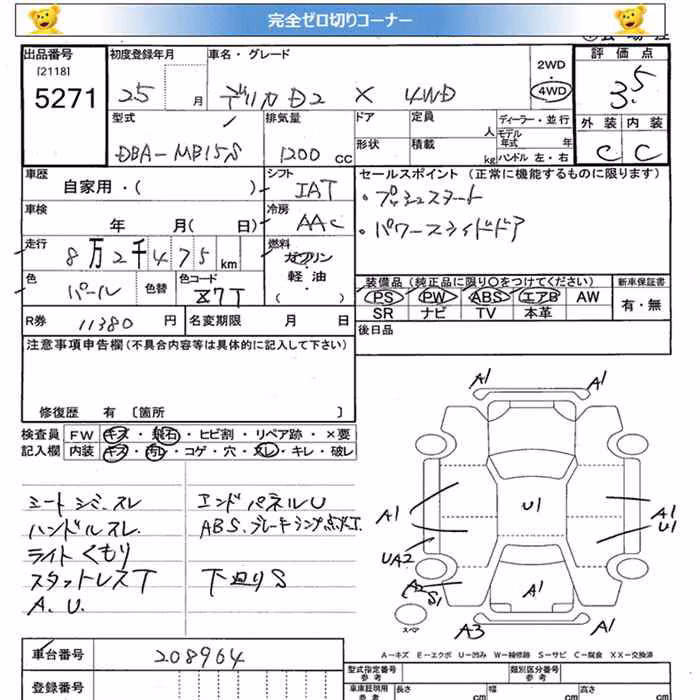 完全ゼロ切りコーナー
出品番号
[2118]
5271
初度登録年月
25 月
車名・グレード
デリカD2 X 4WD
2WD
・
4WD
評価点
3.5
型式
DBA-MB15S
排気量
1200 cc
ドア
形状
定員 人
積載 kg
ディーラー・並行
モデル年式 年
ハンドル 左・右
外装 内装
C C
車歴
自家用・( )
シフト
IAT
セールスポイント (正常に機能するものに限ります)
・プッシュスタート
・パワースライドドア
車検
年 月( 日)
冷房
AAC
走行
8万2千475km
燃料
ガソリン
軽油
( )
色
パール
色替
色コード
Z7T
装備品 (純正品に限り〇をつけてください) 新車保証書
PS PW ABS エアB AW
SR ナビ TV 本革
有・無
R券 11380 円
名変期限 月 日
後日品
注意事項申告欄(不具合内容等は具体的に記入して下さい)
修復歴 有 〔箇所 〕
検査員 FW キズ・飛石・ヒビ割・リペア跡・×要
記入欄 内装 キズ・汚レ・コゲ・穴・スレ・キレ・破レ
シートシミ、スレ
ハンドルスレ.
ライトくもり
スタットレスT
A.U.
エンドパネルU
ABS、ブレーキランプ点灯
下廻りS
A1 A1
A1 U1 A1
U1
UA2
A2 S1 A1
スペア
A3 A1
A-キズ E-エクボ U-凹み W-補修跡 S-サビ C-腐食 XX-交換済
車台番号 208964
登録番号
型式指定番号
参考
類別区分番号
参考
車庫証明用
参考
長さ cm 幅 cm 高さ cm